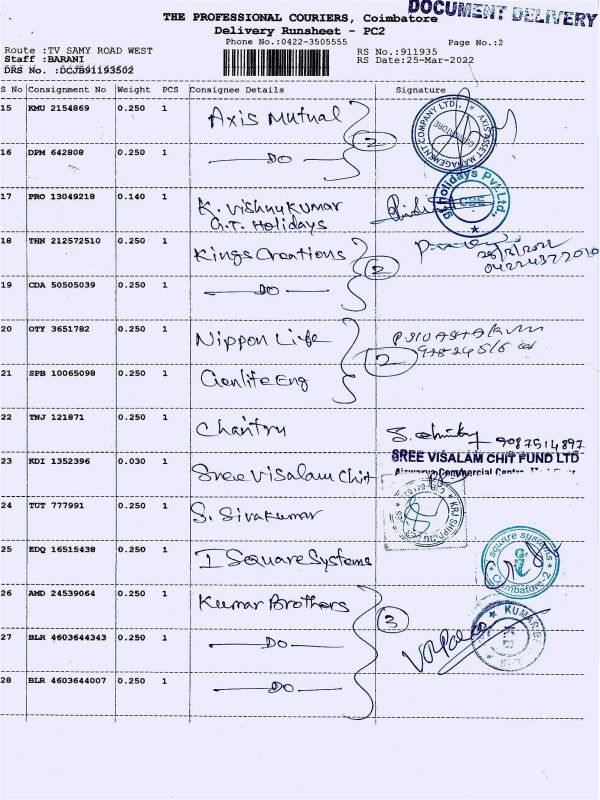 DOCUMENT DELIVERY
THE PROFESSIONAL COURIERS, Coimbatore
Delivery Runsheet - PC2
Phone No.:0422-3505555
Page No.:2
Route :TV SAMY ROAD WEST
RS No.:911935
Staff :BARANI
RS Date:25-Mar-2022
DRS No. :DCJB91193502
S No Consignment No Weight PCS Consignee Details Signature
15 KMU 2154869 0.250 1 Axis Mutual
2
AXIS ASSET MANAGEMENT COMPANY LTD.,
COIMBATORE
16 DPM 642808 0.250 1 DO
17 PRO 13049218 0.140 1 K. Vishnu Kumar
G.T. Holidays
Holidays Pvt. Ltd.,
CBE
18 THN 212572510 0.250 1 Kings Creations
2
04224377010
19 CDA 50505039 0.250 1 DO
20 OTY 3651782 0.250 1 Nippon Life
2
21 SPB 10065098 0.250 1 Genlife Eng
22 TNJ 121871 0.250 1 Chaitry
9087514897
23 KDI 1352396 0.030 1 Sree Visalam Chit
SREE VISALAM CHIT FUND LTD
Commercial Centre
24 TUT 777991 0.250 1 S. Sivakumar
KRJ SHIPPING
25 EDQ 16515438 0.250 1 I Square Systems
square systems
i
Coimbatore-2
26 AMD 24539064 0.250 1 Kumar Brothers
3
KUMAR
27 BLR 4603644343 0.250 1 DO
28 BLR 4603644007 0.250 1 DO